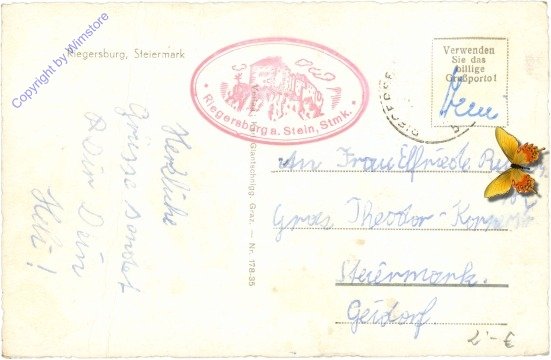 Copyright by Wimstore
Riegersburg, Steiermark
Riegersburg a. Stein, Stmk.
Verwenden
Sie das
billige
Großporto!
Herzliche
Grüsse sendet
Dir Dein
Heli!
Graz — Nr. 178-35
An Frau Elfriede
Graz Theodor-
Steiermark.
Geidorf